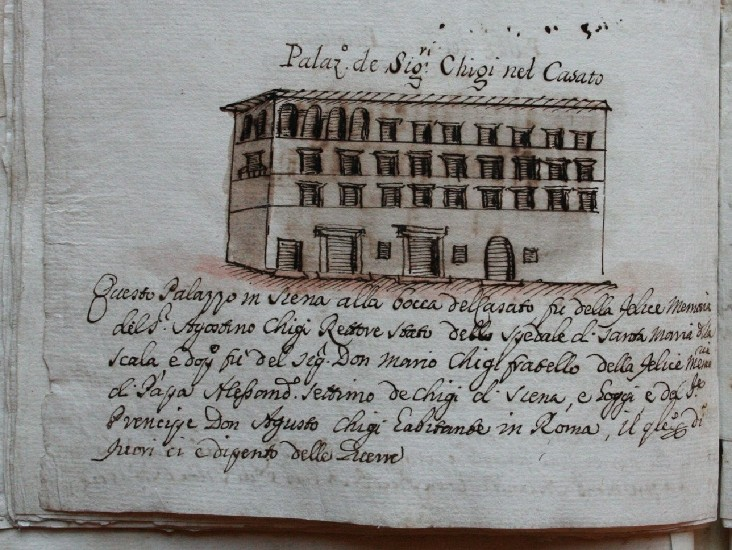 Palaz.º de Sig.ri Chigi nel Casato
Questo Palazzo in Siena alla bocca del Casato fù della felice Memoria
del S.r Agostino Chigi Rettore stato dello spedale di Santa Maria della
Scala, e dopº fù del Sig.r Don Mario Chigi fratello della felice Memoria
di Papa Alessand. settimo de Chigi di Siena, e hoggi è del
Prencipe Don Agusto Chigi habitante in Roma, il
fuori ci è dipento delle